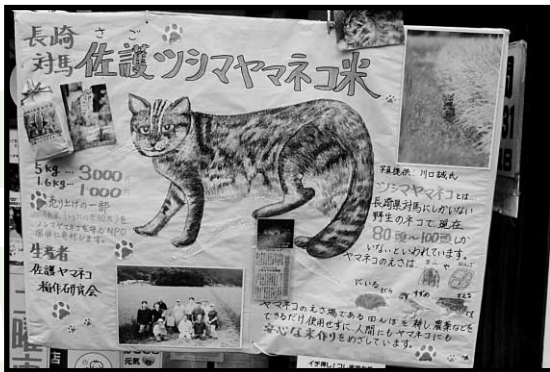 長崎
対馬
さご
佐護ツシマヤマネコ米
5kg… 3000円
1.6kg… 1000円
売り上げの一部
ツシマヤマネコを守るNPO
団体に寄付します。
生産者
佐護ヤマネコ
稲作研究会
写真提供：川口誠氏
ツシマヤマネコとは…
長崎県対馬にしかいない
野生のネコで、現在
80頭〜100頭しか
いないといわれています。
ヤマネコのえさは
ヤマネコのえさ場である田んぼを耕し、農薬などを
できるだけ使用せずに、人間にもヤマネコにも
安心な米作りをめざしています。
元気